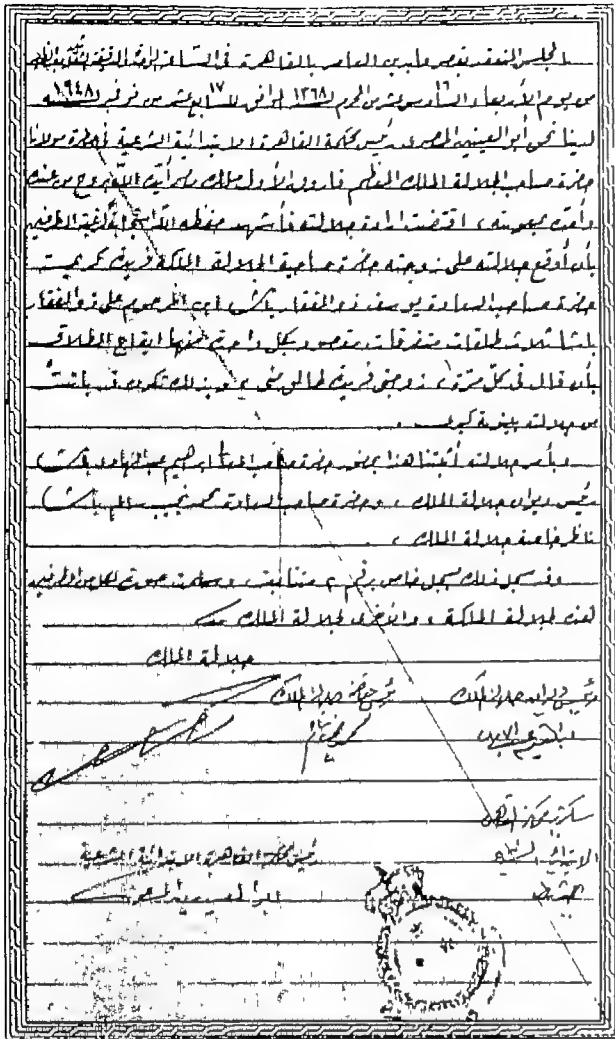 بالمجلس المنعقد بقصر عابدين العامر بالقاهرة فى الساعة الرابعة الدقيقة
من يوم الأربعاء السادس عشر ١٦ من المحرم ١٣٦٨ الموافق للسابع عشر ١٧ من نوفمبر ١٩٤٨
لدينا نحن أبو العينين المصرى رئيس محكمة القاهرة الابتدائية الشرعية
حضرة صاحب الجلالة الملك المعظم فاروق الأول ملك مصر أيده الله بروح من عنده
وأمده بمعونته، اقتضت ارادة جلالته فأشهد حفظه الله
بأن أوقع جلالته على زوجته حضرة صاحبة الجلالة الملكة فريدة كريمة
حضرة صاحب السعادة يوسف ذو الفقار باشا ابن المرحوم على ذو الفقار
باشا ثلاث طلقات متفرقات مقصود بكل واحدة منها ايقاع الطلاق
بأن قال فى كل مرة، زوجتى فريدة طالق منى، وبذلك تكون قد بانت
من جلالته بينونة كبرى
وبأمر جلالته أثبتنا هذا بحضور حضرة صاحب المعالى ابراهيم عبد الهادى باشا
رئيس ديوان جلالة الملك، وحضرة صاحب السعادة محمد نجيب سالم باشا
ناظر خاصة جلالة الملك،
وقد سجل ذلك بسجل خاص رقم ٢ متتابعة، وسلمت صورة لكل من الطرفين
هذه لجلالة الملكة، والأخرى لجلالة الملك
جلالة الملك
رئيس ديوان جلالة الملك ناظر خاصة جلالة الملك
سكرتير محكمة القاهرة
الابتدائية الشرعية رئيس محكمة القاهرة الابتدائية الشرعية